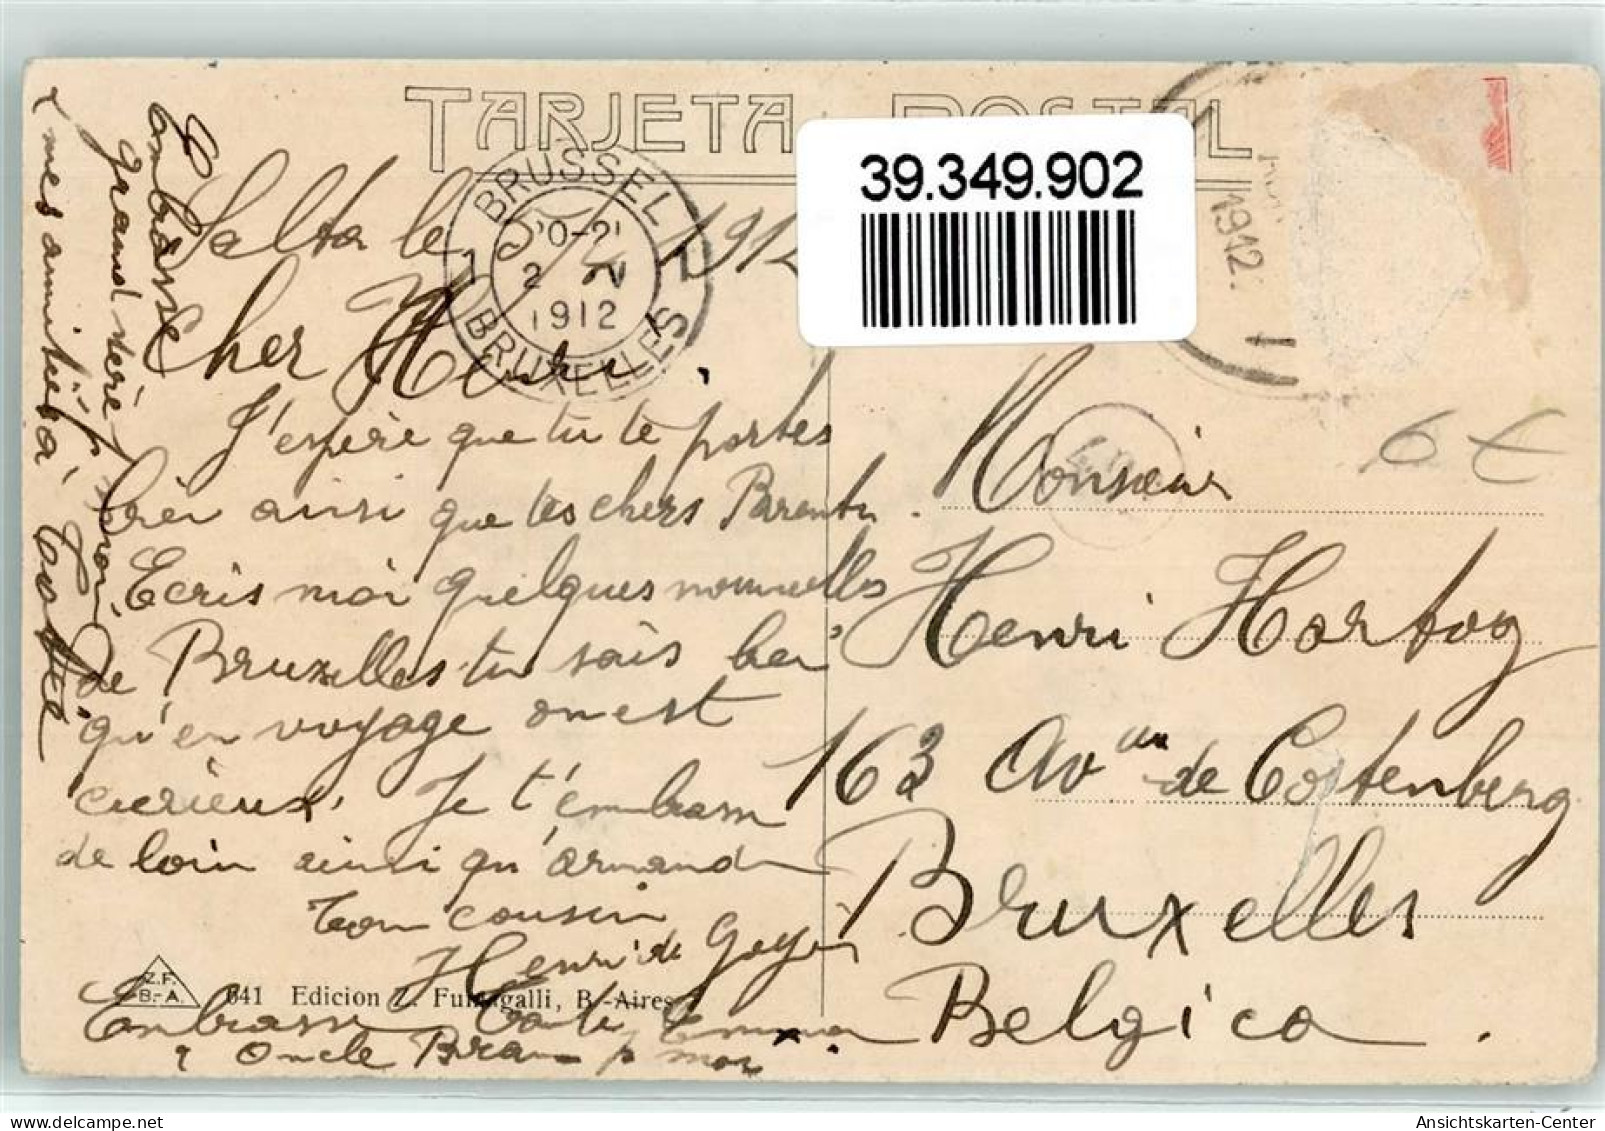 TARJETA POSTAL
39.349.902
BRUSSEL
20-21
2 IV
1912
BRUXELLES
1912
Salta le 1912
Cher Henri.
J'espère que tu te portes
bien ainsi que tes chers Parents.
Ecris moi quelques nouvelles
de Bruxelles tu sais bien
qu'en voyage on est
curieux. Je t'embrasse
de loin ainsi qu'Armand
Ton cousin
Henri de
Embrasse Tante Emma
& Oncle pr moi
Embrasse
grand mère
pr moi
& mes amitiés à
6 €
Monsieur
Henri Hartog
163 Avenue de Cortenberg
Bruxelles
Belgica.
Z.F.
B.-A.
641 Edicion Z. Fumagalli, B.-Aires
Ansichtskarten-Center